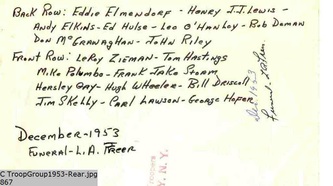 Back Row: Eddie Elmendorf - Henry J.J. Lewis -
Andy Elkins - Ed Hulse - Leo O'Hanley - Bob Doman
Don McGranaghan - John Riley
Front Row: LeRoy Zieman - Tom Hastings
Mike Palumbo - Frank Jake Storm
Hensley Gay - Hugh Wheeler - Bill Driscoll
Jim Skelly - Carl Lawson - George Hofer
Dec 1953
Funeral
December - 1953
Funeral - L.A.
N.Y.
C TroopGroup1953-Rear.jpg
867